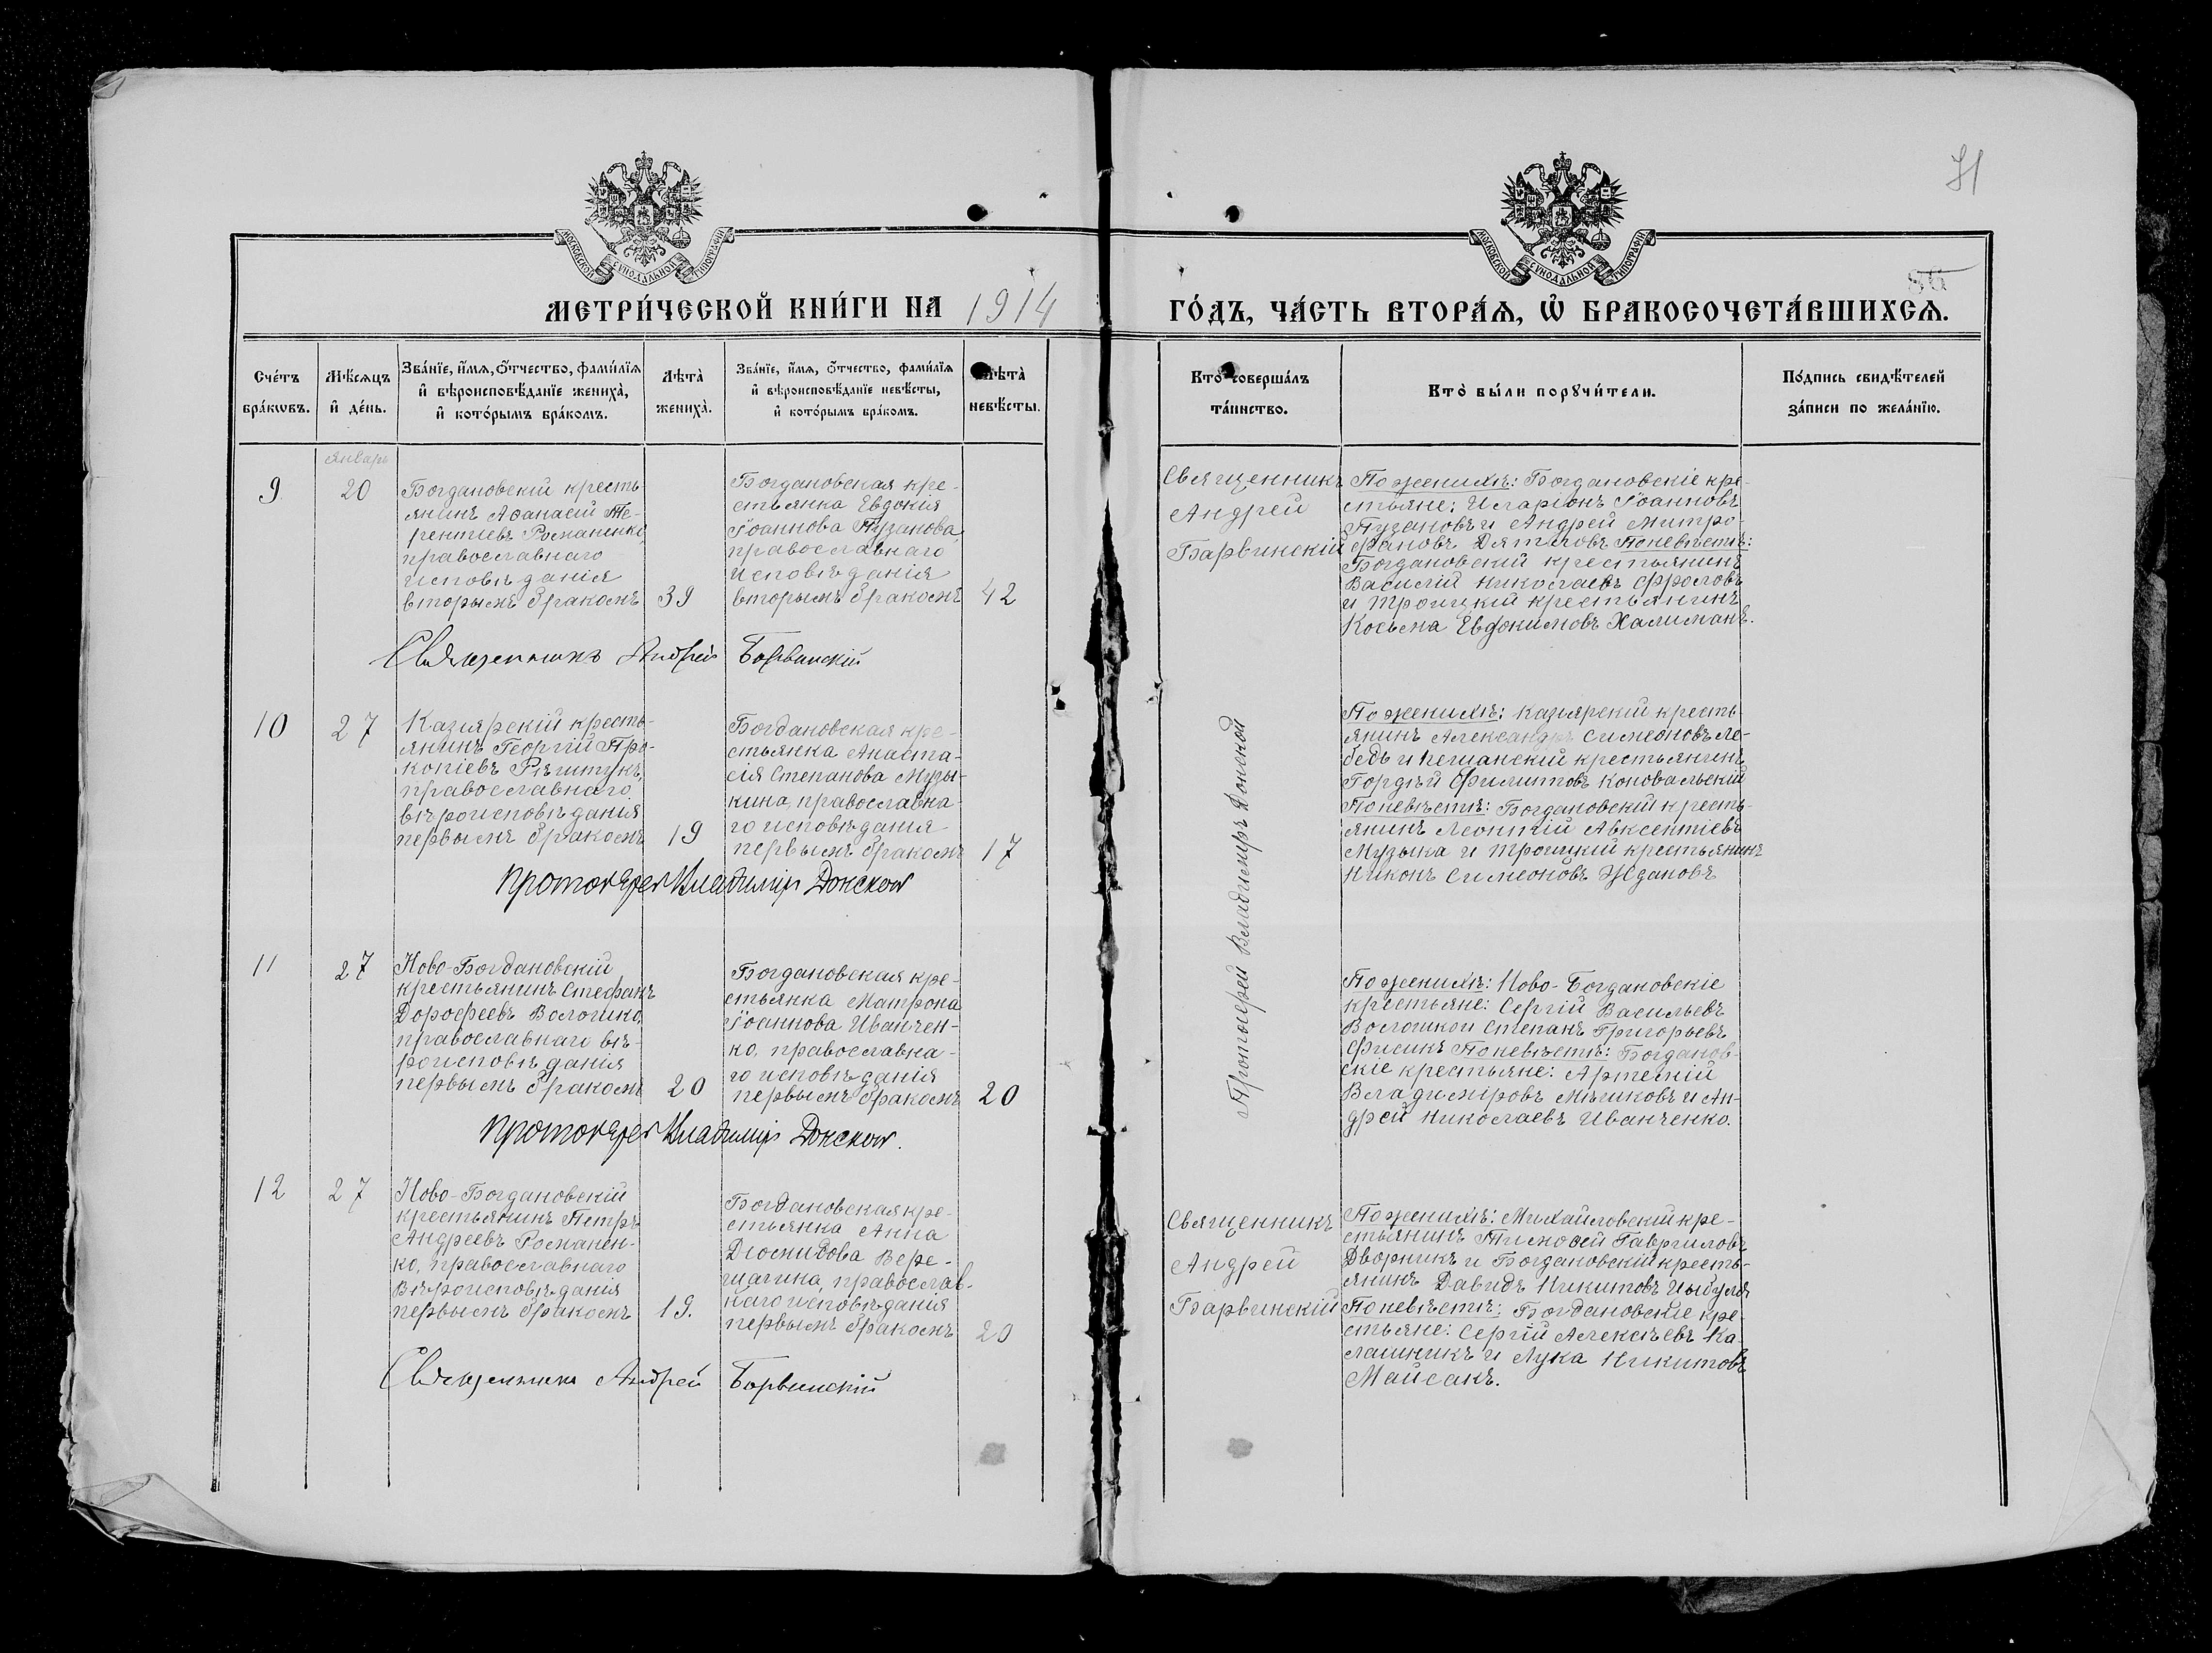 71
86
МОСКОВСКОЙ СѴНОДАЛЬНОЙ ТИПОГРАФІИ
МОСКОВСКОЙ СѴНОДАЛЬНОЙ ТИПОГРАФІИ
МЕТРИ́ЧЕСКОЙ КНИ́ГИ НА 1914
ГО́ДЪ, ЧА́СТЬ ВТОРА́Ѧ, Ѽ БРАКОСОЧЕТА́ВШИХСѦ.
Сче́тъ
бра́кѡвъ.
Мѣ́сѧцъ
и҆ де́нь.
Зва́нїе, и҆́мѧ, ѻ҆́тчество, фами́лїѧ
и҆ вѣроисповѣ́данїе жениха̀,
и҆ кото́рымъ бра́комъ.
Лѣта̀
жениха̀.
Зва́нїе, и҆́мѧ, ѻ҆́тчество, фами́лїѧ
и҆ вѣроисповѣ́данїе невѣ́сты,
и҆ кото́рымъ бра́комъ.
Лѣта̀
невѣ́сты.
Кто̀ соверша́лъ
та́инство.
Кто̀ бы́ли порꙋчи́тели.
По́дпись свидѣ́телей
за́писи по жела́нїю.
Январь
9.
20
Богдановскій кресть-
янинъ Аѳанасій Те-
рентіевъ Романенко,
православнаго
исповѣданія
вторымъ бракомъ
39
Богдановская кре-
стьянка Евдокія
Іоаннова Пузанова,
православнаго
исповѣданія
вторымъ бракомъ
42
Священникъ
Андрей
Барвинскій
По женихѣ: Богдановскіе кре-
стьяне: Иларіонъ Іоанновъ
Пузановъ и Андрей Митро-
фановъ Дятловъ По невѣстѣ:
Богдановскій крестьянинъ
Василій Николаевъ Фроловъ
и Троицкій крестьянинъ
Косьма Евдокимовъ Халиманъ.
Священникъ Андрей Барвинскій
10
27
Казіярскій кресть-
янинъ Георгій Про-
копіевъ Рѣшитукъ,
православнаго
вѣроисповѣданія
первымъ бракомъ
19
Богдановская кре-
стьянка Анаста-
сія Степанова Музы-
кина, православна-
го исповѣданія
первымъ бракомъ
17
Протоіерей Владимиръ Донской
По женихѣ: Казіярскій кресть-
янинъ Александръ Симеоновъ Ле-
бедь и Пешанскій крестьянинъ
Гордѣй Филиповъ Коновальскій
По невѣстѣ: Богдановскій кресть-
янинъ Леонтій Авксентіевъ
Музыка и Троицкій крестьянинъ
Никонъ Симеоновъ Ждановъ
Протоіерей Владиміръ Донской
11
27
Ново-Богдановскій
крестьянинъ Стефанъ
Дорофеевъ Волошко,
православнаго вѣ-
роисповѣданія
первымъ бракомъ
20
Богдановская кре-
стьянка Матрона
Іоаннова Иванчен-
ко, православна-
го исповѣданія
первымъ бракомъ
20
По женихѣ: Ново-Богдановскіе
крестьяне: Сергій Васильевъ
Волошко и Степанъ Григорьевъ
Фисикъ По невѣстѣ: Богданов-
скіе крестьяне: Артемій
Владиміровъ Мѣшковъ и Ан-
дрей Николаевъ Иванченко.
Протоіерей Владиміръ Донской.
12
27
Ново-Богдановскій
крестьянинъ Петръ
Андреевъ Романен-
ко, православнаго
вѣроисповѣданія
первымъ бракомъ
19.
Богдановская кре-
стьянка Анна
Діомидова Вере-
щагина, православ-
наго исповѣданія
первымъ бракомъ
20
Священникъ
Андрей
Барвинскій
По женихѣ: Михайловскій кре-
стьянинъ Тимофей Гавриловъ
Дворникъ и Богдановскій кресть-
янинъ Давидъ Никитовъ Цыбуля
По невѣстѣ: Богдановскіе кре-
стьяне: Сергій Алексѣевъ Ка-
лашникъ и Лука Никитовъ
Майсакъ.
Священникъ Андрей Барвинскій